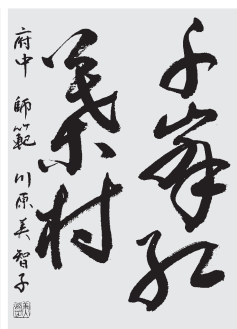 千峯紅
葉村
府中 師範 川原美智子